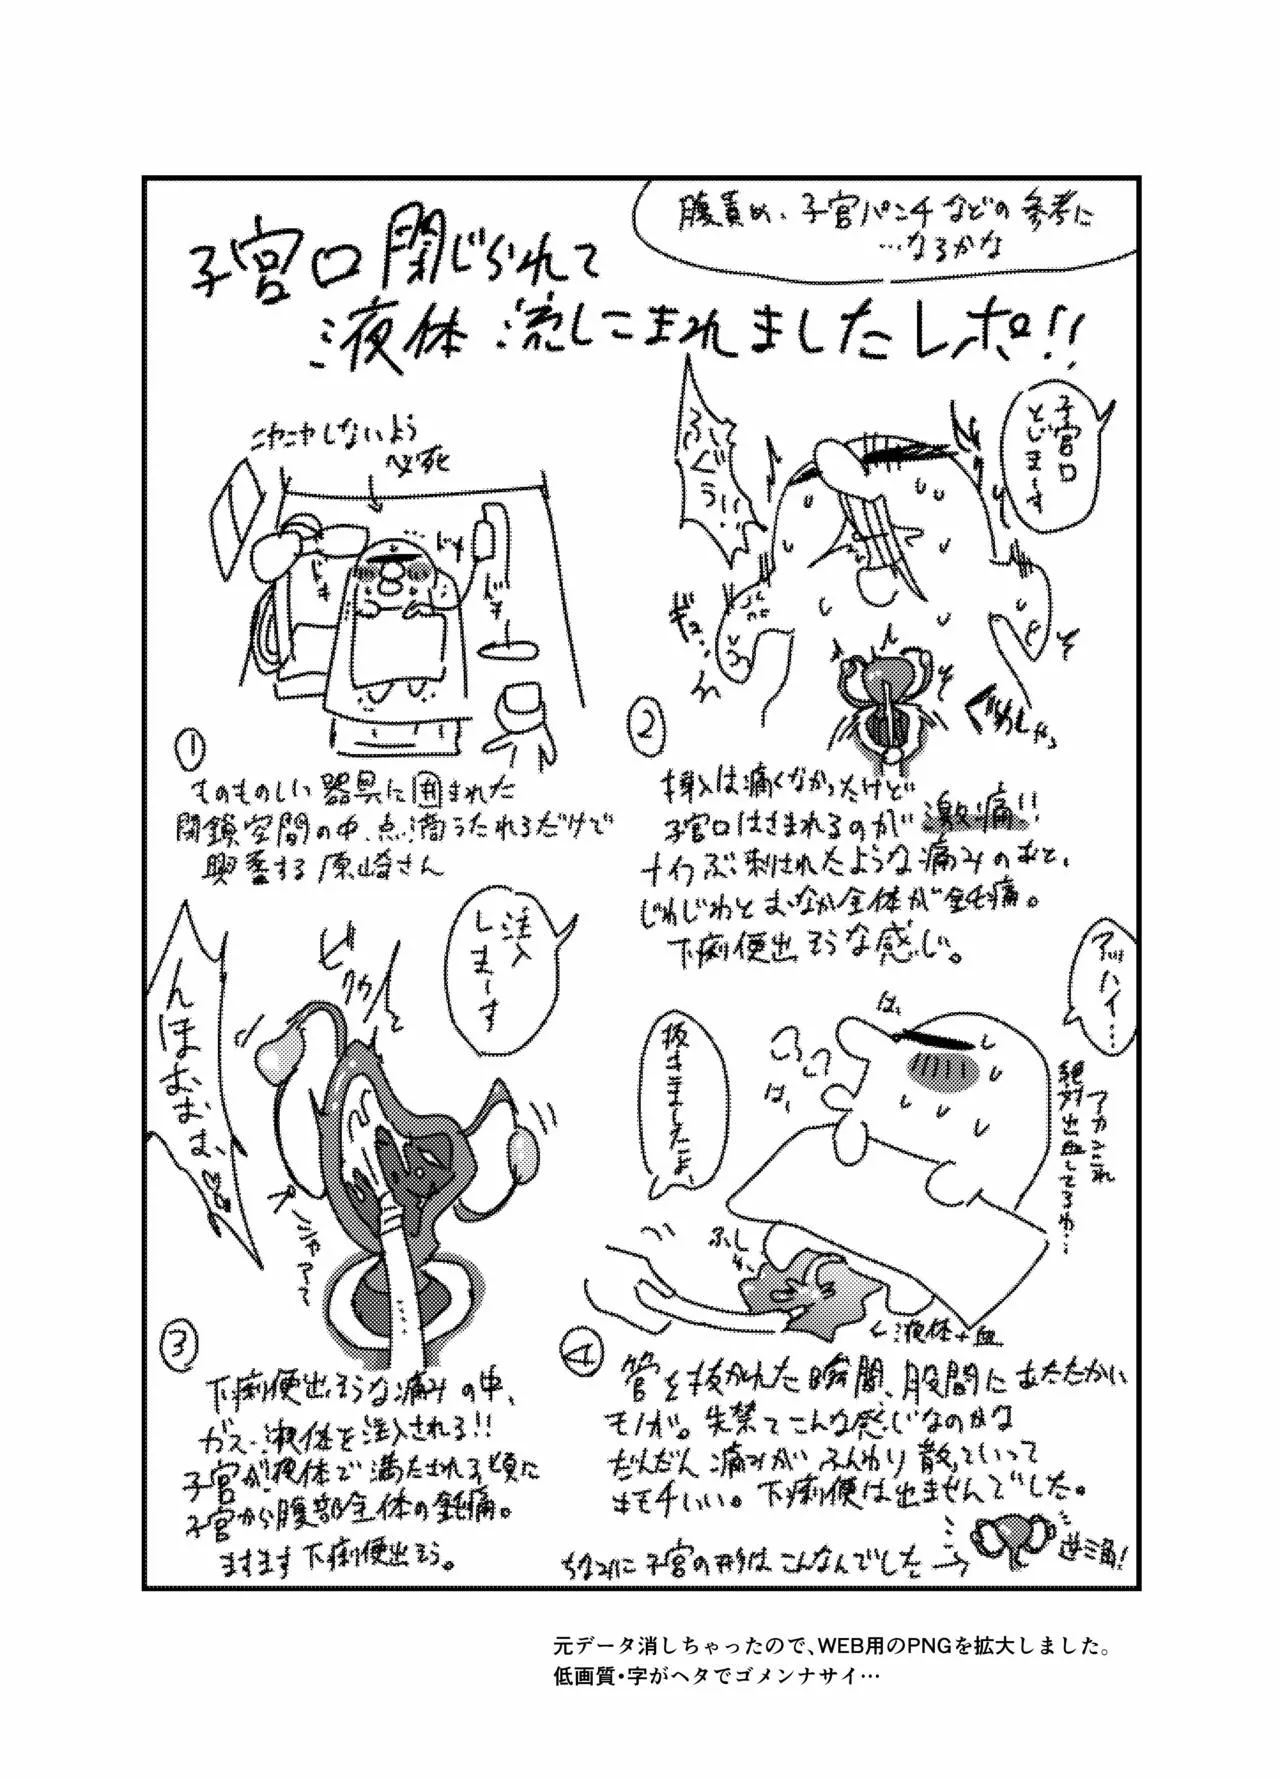 腹責め、子宮パンチなどの参考に
…なるかな
子宮口閉じられて
液体流しこまれましたレポ!!
ニヤニヤしないよう
必死
ドキ
ドキ
ドキ
①
ものものしい器具に囲まれた
閉鎖空間の中、点滴うたれるだけで
興奮する原崎さん
子宮口
とじま〜す
ふぐぅぃ!!
ギュ…
②
挿入は痛くなかったけど
子宮口はさまれるのが激痛!!
ナイフぶっ刺されたような痛みのあと、
じわじわとおなか全体が鈍痛。
下痢便出そうな感じ。
注入
しま〜す
ビクカッ
んほぉぉぉぉ、
③
下痢便出そうな痛みの中、
ガス・液体を注入される!!
子宮が液体で満たされる頃に
子宮から腹部全体の鈍痛。
ますます下痢便出そう。
アッハイ…
は、
は、
抜けましたよ、
アカンこれ
絶対出血してるわ…
←液体+血
④
管を抜かれた瞬間、股間にあたたかい
モノが。失禁てこんな感じなのかな
だんだん痛みがふんわり散っていって
キモチいい。下痢便は出ませんでした。
ちなみに子宮の形はこんなんでした→
逆三角!
元データ消しちゃったので、WEB用のPNGを拡大しました。
低画質・字がヘタでゴメンナサイ…